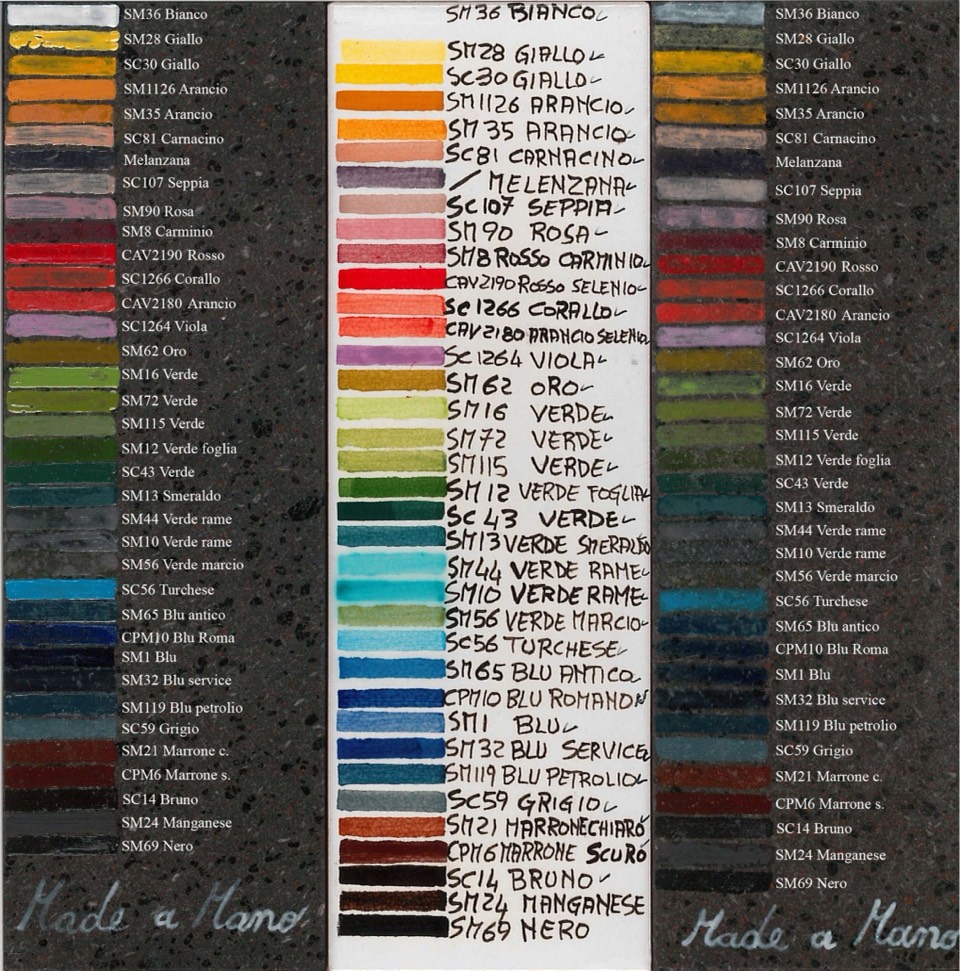 SM36 Bianco
SM28 Giallo
SC30 Giallo
SM1126 Arancio
SM35 Arancio
SC81 Carnacino
Melanzana
SC107 Seppia
SM90 Rosa
SM8 Carminio
CAV2190 Rosso
SC1266 Corallo
CAV2180 Arancio
SC1264 Viola
SM62 Oro
SM16 Verde
SM72 Verde
SM115 Verde
SM12 Verde foglia
SC43 Verde
SM13 Smeraldo
SM44 Verde rame
SM10 Verde rame
SM56 Verde marcio
SC56 Turchese
SM65 Blu antico
CPM10 Blu Roma
SM1 Blu
SM32 Blu service
SM119 Blu petrolio
SC59 Grigio
SM21 Marrone c.
CPM6 Marrone s.
SC14 Bruno
SM24 Manganese
SM69 Nero
Made a Mano
SM36 BIANCO
SM28 GIALLO
SC30 GIALLO
SM1126 ARANCIO
SM35 ARANCIO
SC81 CARNACINO
/ MELENZANA
SC107 SEPPIA
SM90 ROSA
SM8 ROSSO CARMINIO
CAV2190 ROSSO SELENIO
SC1266 CORALLO
CAV2180 ARANCIO SELENIO
SC1264 VIOLA
SM62 ORO
SM16 VERDE
SM72 VERDE
SM115 VERDE
SM12 VERDE FOGLIA
SC43 VERDE
SM13 VERDE SMERALDO
SM44 VERDE RAME
SM10 VERDE RAME
SM56 VERDE MARCIO
SC56 TURCHESE
SM65 BLU ANTICO
CPM10 BLU ROMANO
SM1 BLU
SM32 BLU SERVICE
SM119 BLU PETROLIO
SC59 GRIGIO
SM21 MARRONE CHIARO
CPM6 MARRONE SCURO
SC14 BRUNO
SM24 MANGANESE
SM69 NERO
SM36 Bianco
SM28 Giallo
SC30 Giallo
SM1126 Arancio
SM35 Arancio
SC81 Carnacino
Melanzana
SC107 Seppia
SM90 Rosa
SM8 Carminio
CAV2190 Rosso
SC1266 Corallo
CAV2180 Arancio
SC1264 Viola
SM62 Oro
SM16 Verde
SM72 Verde
SM115 Verde
SM12 Verde foglia
SC43 Verde
SM13 Smeraldo
SM44 Verde rame
SM10 Verde rame
SM56 Verde marcio
SC56 Turchese
SM65 Blu antico
CPM10 Blu Roma
SM1 Blu
SM32 Blu service
SM119 Blu petrolio
SC59 Grigio
SM21 Marrone c.
CPM6 Marrone s.
SC14 Bruno
SM24 Manganese
SM69 Nero
Made a Mano